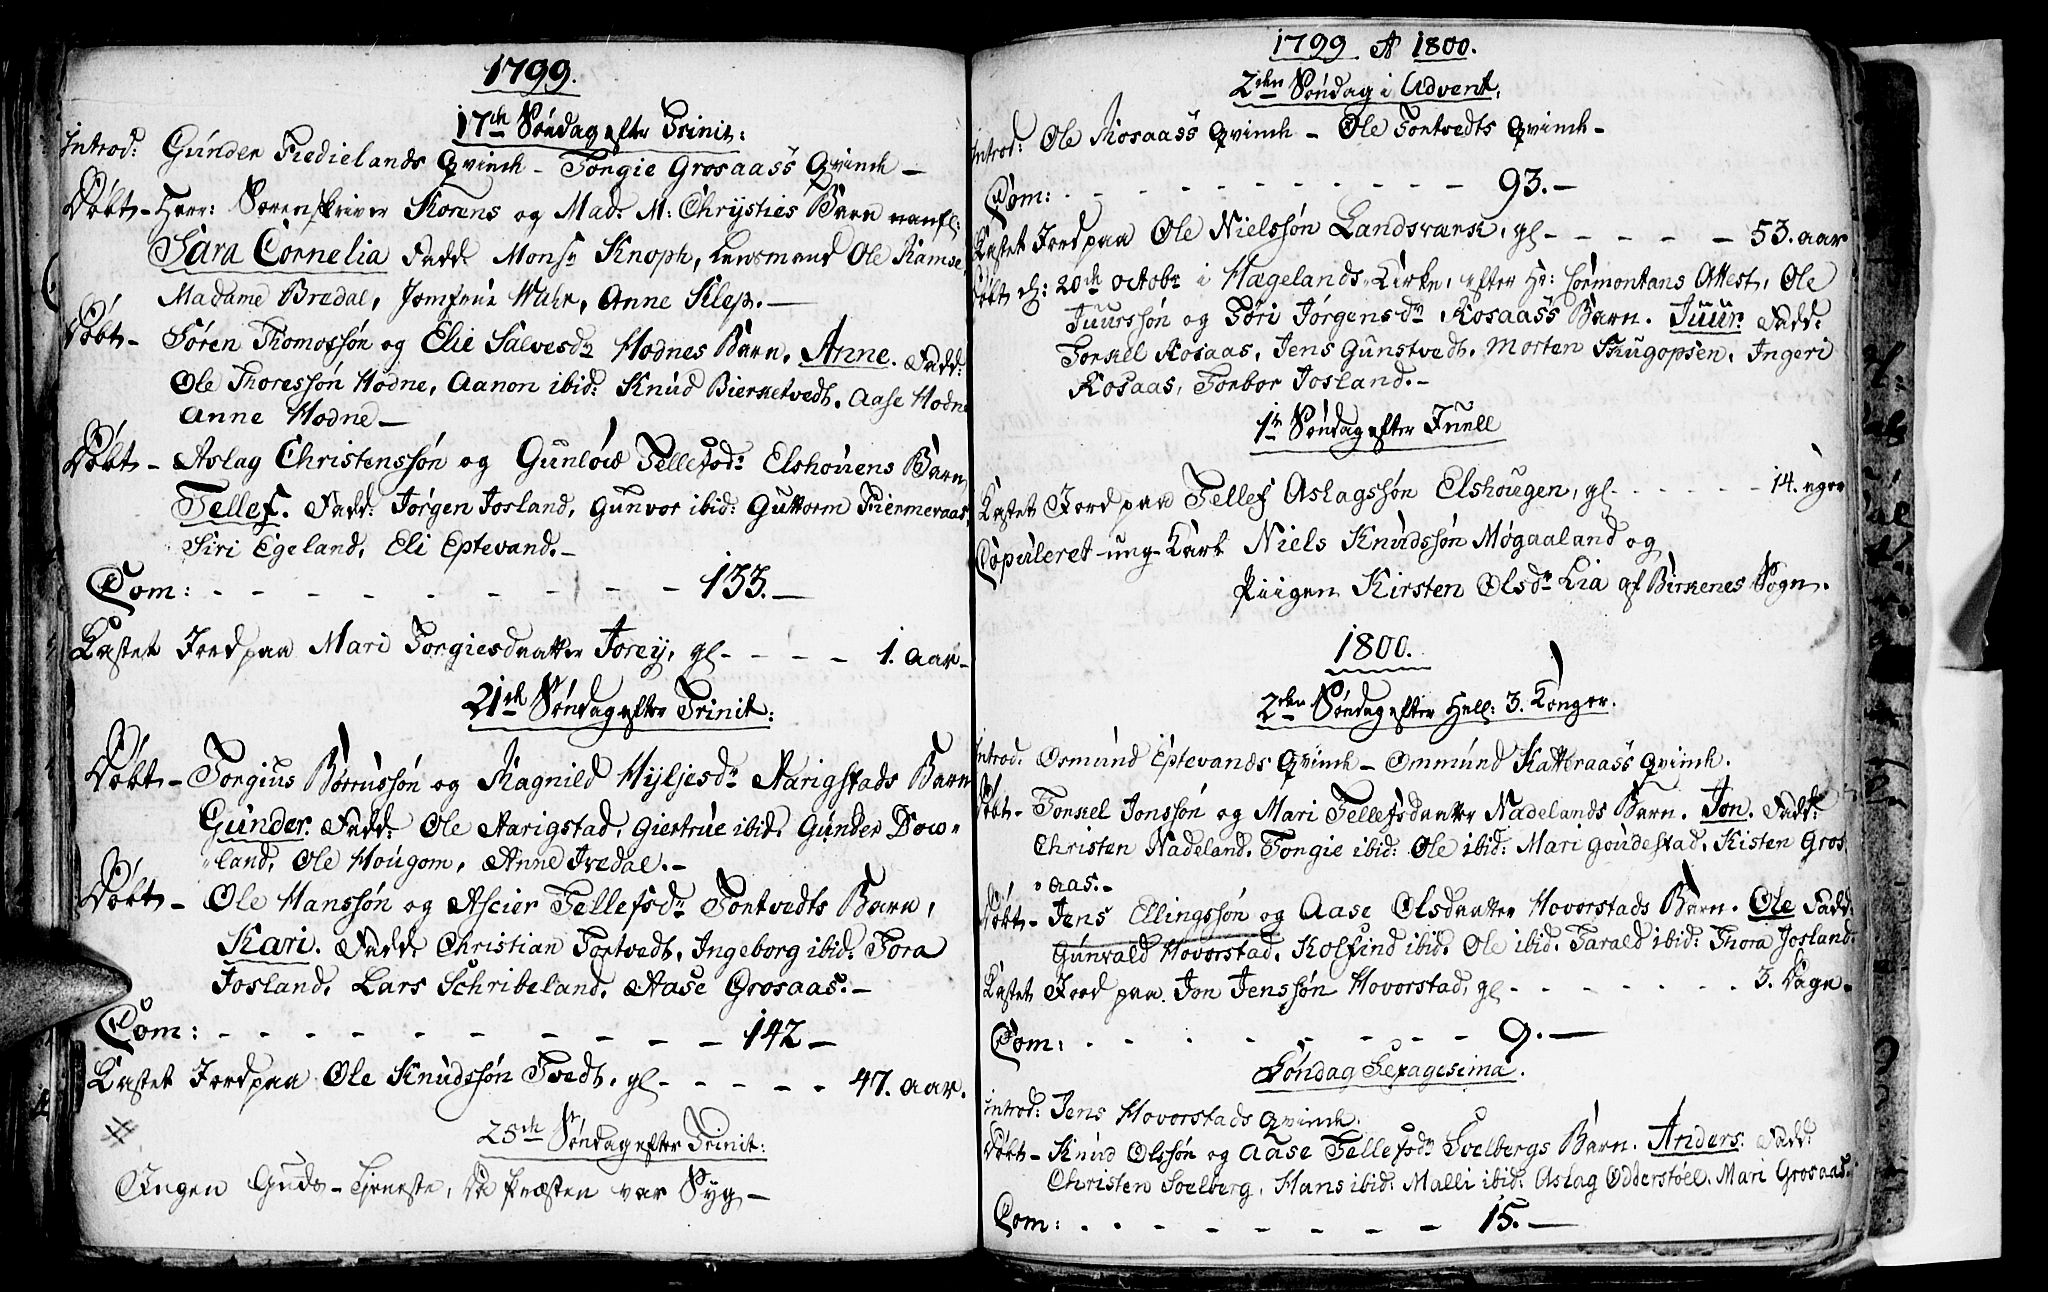 1799.
17de Søndag efter Trinit:
Introd: Gunder Fiedielands Qvinde - Torgie Grosaass Qvinde -
Døbt - Herr: Sorenskriver Korens og Mad: M: Chrysties Barn navnl:
Sara Cornelia Fadd: Monsr Knoph, Lensmand Ole Ramse
Madame Bredal, Jomfrue Wuhr, Anne Klep. -
Døbt - Sören Thomossön og Elie Salvesdr Hodnes Barn. Anne. Fadd:
Ole Thoressön Hodne, Aanon ibid: Knud Bierketvedt. Aase Hodne
Anne Hodne -
Døbt - Aslag Christenssön og Gunlou Tellefsd: Elshouens Barn,
Tellef. Fadd: Jörgen Josland, Gunvor ibid: Guttorm Fiermeraas,
Siri Egeland, Eli Eptevand. -
Com: - - - - - - - - - 133. -
Kastet Jord paa Mari Torgiesdaatter Torey, gl - - - - 1. aar -
21de Søndag efter Trinit:
Døbt - Torgius Börrussön og Ragnild Hyljesdr Aarigstads Barn
Gunder. Fadd: Ole Aarigstad. Giertrue ibid. Gunder Dow=
=land, Ole Hougom, Anne Ivedal. -
Døbt - Ole Hanssön og Ascier Tellefsdr Tortvedts Barn,
Kari. Fadd: Christian Tortvedt. Ingeborg ibid: Tora
Josland. Lars Schribeland. Aase Grosaas. -
Com: - - - - - - - - - 142 -
Kastet Jord paa Ole Knudssön Tvedt. gl - - - - - 47. aar.
25de Søndag efter Trinit:
Ingen Guds-Tjeneste, da Præsten var Syg -
1799 A 1800.
2den Søndag i Advent.
Introd: Ole Rosaass Qvinde - Ole Tortvedts Qvinde -
Com: - - - - - - - - - 93. -
Kastet Jord paa Ole Nielssön Landsværk, gl - - - - - 53. aar
Døbt d: 20de octobr i Hægelands Kirke, efter Hr: Cormontans Attest, Ole
Juurssön og Töri Jörgensdr Rosaass Barn. Juur. Fadd:
Torkel Rosaas, Jens Gunstvedt. Morten Skugopsen. Ingeri
Rosaas, Torbor Josland. -
1te Søndag efter Juell
Kastet Jord paa Tellef Aslagssön Elshougen, gl - - - - - 14. uger
Copuleret - ung-Karl Niels Knudssön Møgaaland og
Piigen Kirsten Olsdr Lia af Birkenes Sogn.
1800.
2den Søndag efter Hell: 3. Konger.
Introd. Osmund Eptevands Qvinde - Ommund Katteraass Qvinde.
Døbt - Torkel Jonssön og Mari Tellefsdaatter Nadelands Barn. Jon. Fadd:
Christen Nadeland. Tongie ibid: Ole ibid: Mari Goudestad. Kisten Gros
=aas. -
Døbt - Jens Ellingssön og Aase Olsdaatter Hovorstads Barn. Ole Fadd:
Gunvald Hovorstad. Kolfind ibid. Ole ibid. Tarald ibid: Thora Josland.
Kastet Jord paa Jon Jenssön Hovorstad, gl - - - - - - 3. Dage -
Com: - - - - - - - - 9. -
Søndag Sexagesima.
Introd: Jens Hovorstads Qvinde.
Døbt - Knud Olssön og Aase Tellefsdr Soelbergs Barn. Anders. Fadd:
Christen Soelberg, Hans ibid: Malli ibid: Aslag Odderstøel. Mari Grosaas.
Com: - - - - - - - - 15. -